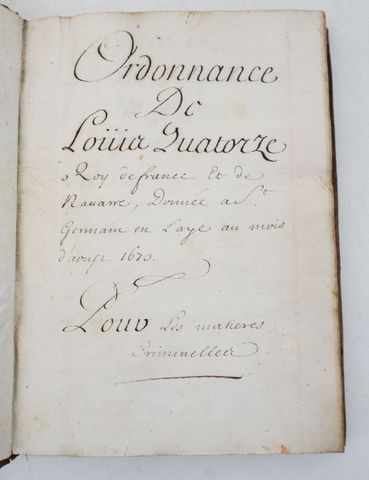 Ordonnance
De
Loüis Quatorze
Roy de france Et de
Nauarre, Donnée a S.t
Germain en Laye au mois
d'aoust 1670.
Pour Les matieres
Criminelles